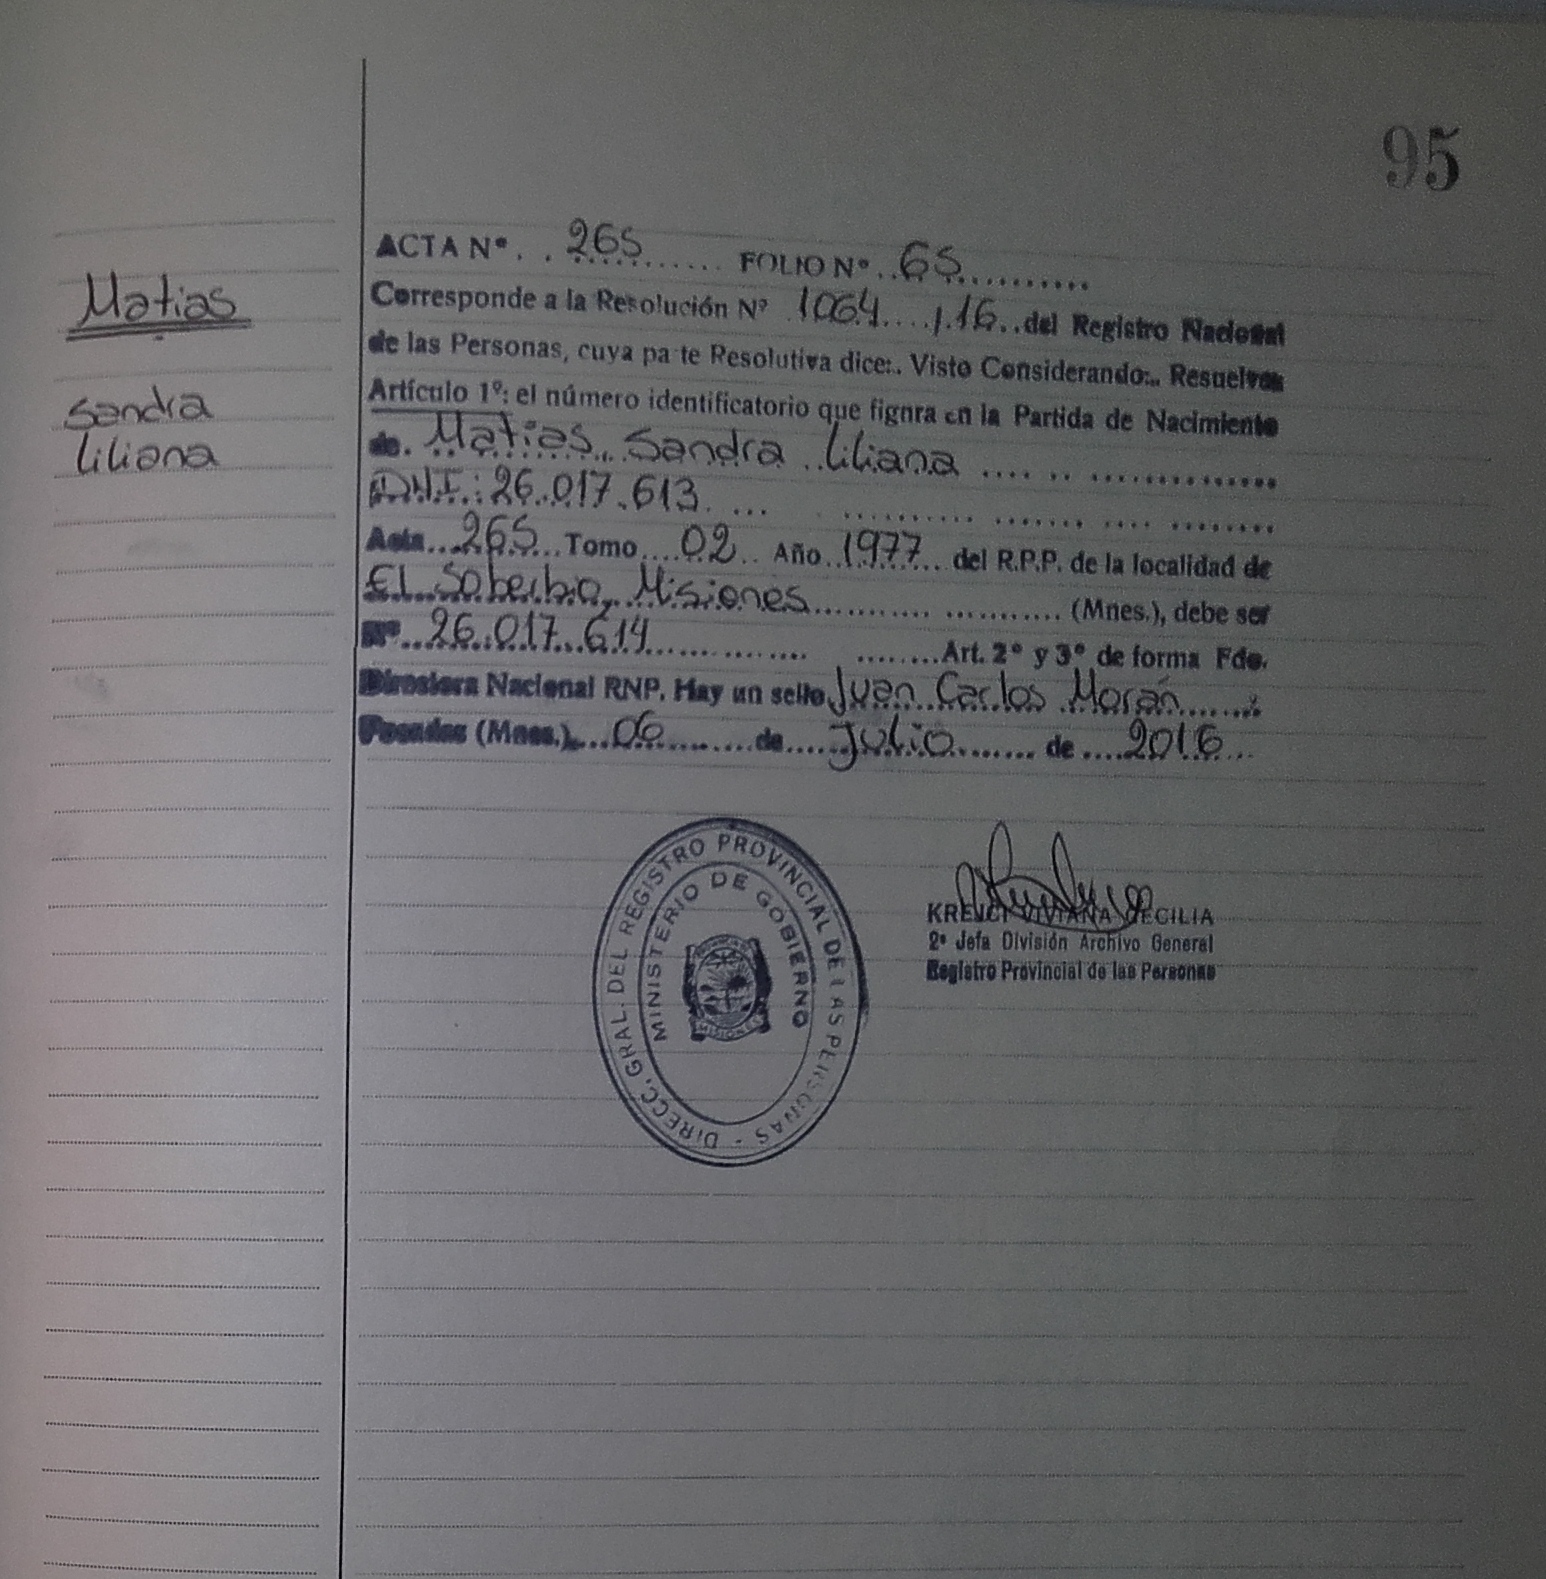 95
Matias
Sandra
Liliana
ACTA Nº. . 265 ....... FOLIO Nº .. 65 ..........
Corresponde a la Resolución Nº 1064 .... / 16 .. del Registro Nacional
de las Personas, cuya pa te Resolutiva dice:. Visto Considerando:.. Resuelves
Artículo 1º: el número identificatorio que fignra en la Partida de Nacimiento
de. Matias Sandra Liliana .... .. ..............
D.N.I.: 26.017.613. ... .......... ....... .... ........
Acta... 265 ...Tomo.... 02 .. Año.. 1977 ... del R.P.P. de la localidad de
El Soberbio, Misiones ........... ........... (Mnes.), debe ser
Nº.. 26.017.614 ............... ........Art. 2º y 3º de forma Fdo.
Directora Nacional RNP. Hay un sello Juan Carlos Morán ......:
Posadas (Mnes.),... 06 ........de...... Julio ....... de .... 2016 ...
DIRECC. GRAL. DEL REGISTRO PROVINCIAL DE LAS PERSONAS -
MINISTERIO DE GOBIERNO
MISIONES
KREJCI VIVIANA CECILIA
2º Jefa División Archivo General
Registro Provincial de las Personas